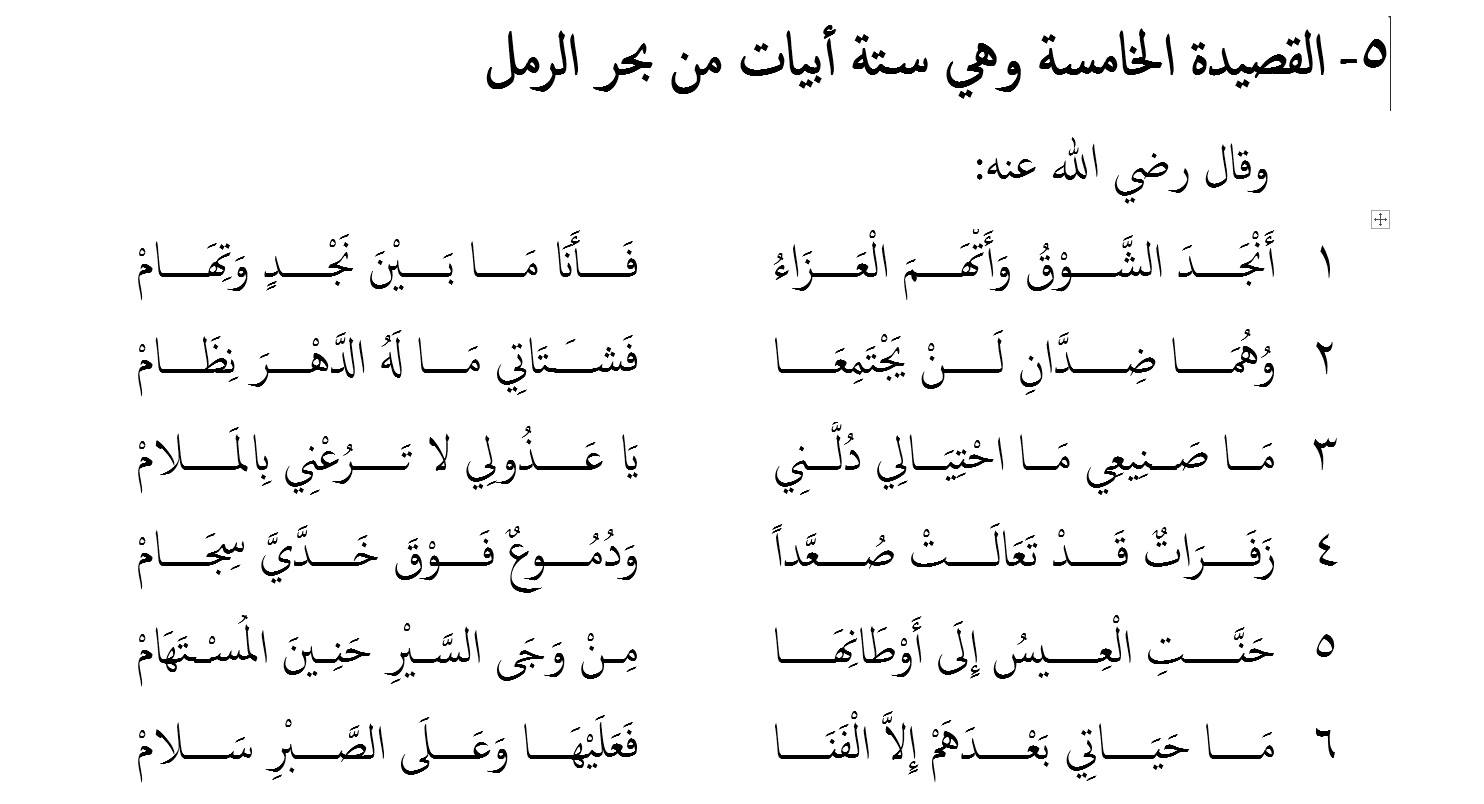 ٥- القصيدة الخامسة وهي ستة أبيات من بحر الرمل
وقال رضي الله عنه:
١ أَنْجَدَ الشَّوْقُ وَأَتْهَمَ الْعَزَاءُ فَأَنَا مَا بَيْنَ نَجْدٍ وَتِهَامْ
٢ وُهُمَا ضِدَّانِ لَنْ يَجْتَمِعَا فَشَتَاتِي مَا لَهُ الدَّهْرَ نِظَامْ
٣ مَا صَنِيعِي مَا احْتِيَالِي دُلَّنِي يَا عَذُولِي لا تَرُعْنِي بِالمَلامْ
٤ زَفَرَاتٌ قَدْ تَعَالَتْ صُعَّداً وَدُمُوعٌ فَوْقَ خَدَّيَّ سِجَامْ
٥ حَنَّتِ الْعِيسُ إِلَى أَوْطَانِهَا مِنْ وَجَى السَّيْرِ حَنِينَ المُسْتَهَامْ
٦ مَا حَيَاتِي بَعْدَهَمْ إِلاَّ الْفَنَا فَعَلَيْهَا وَعَلَى الصَّبْرِ سَلامْ